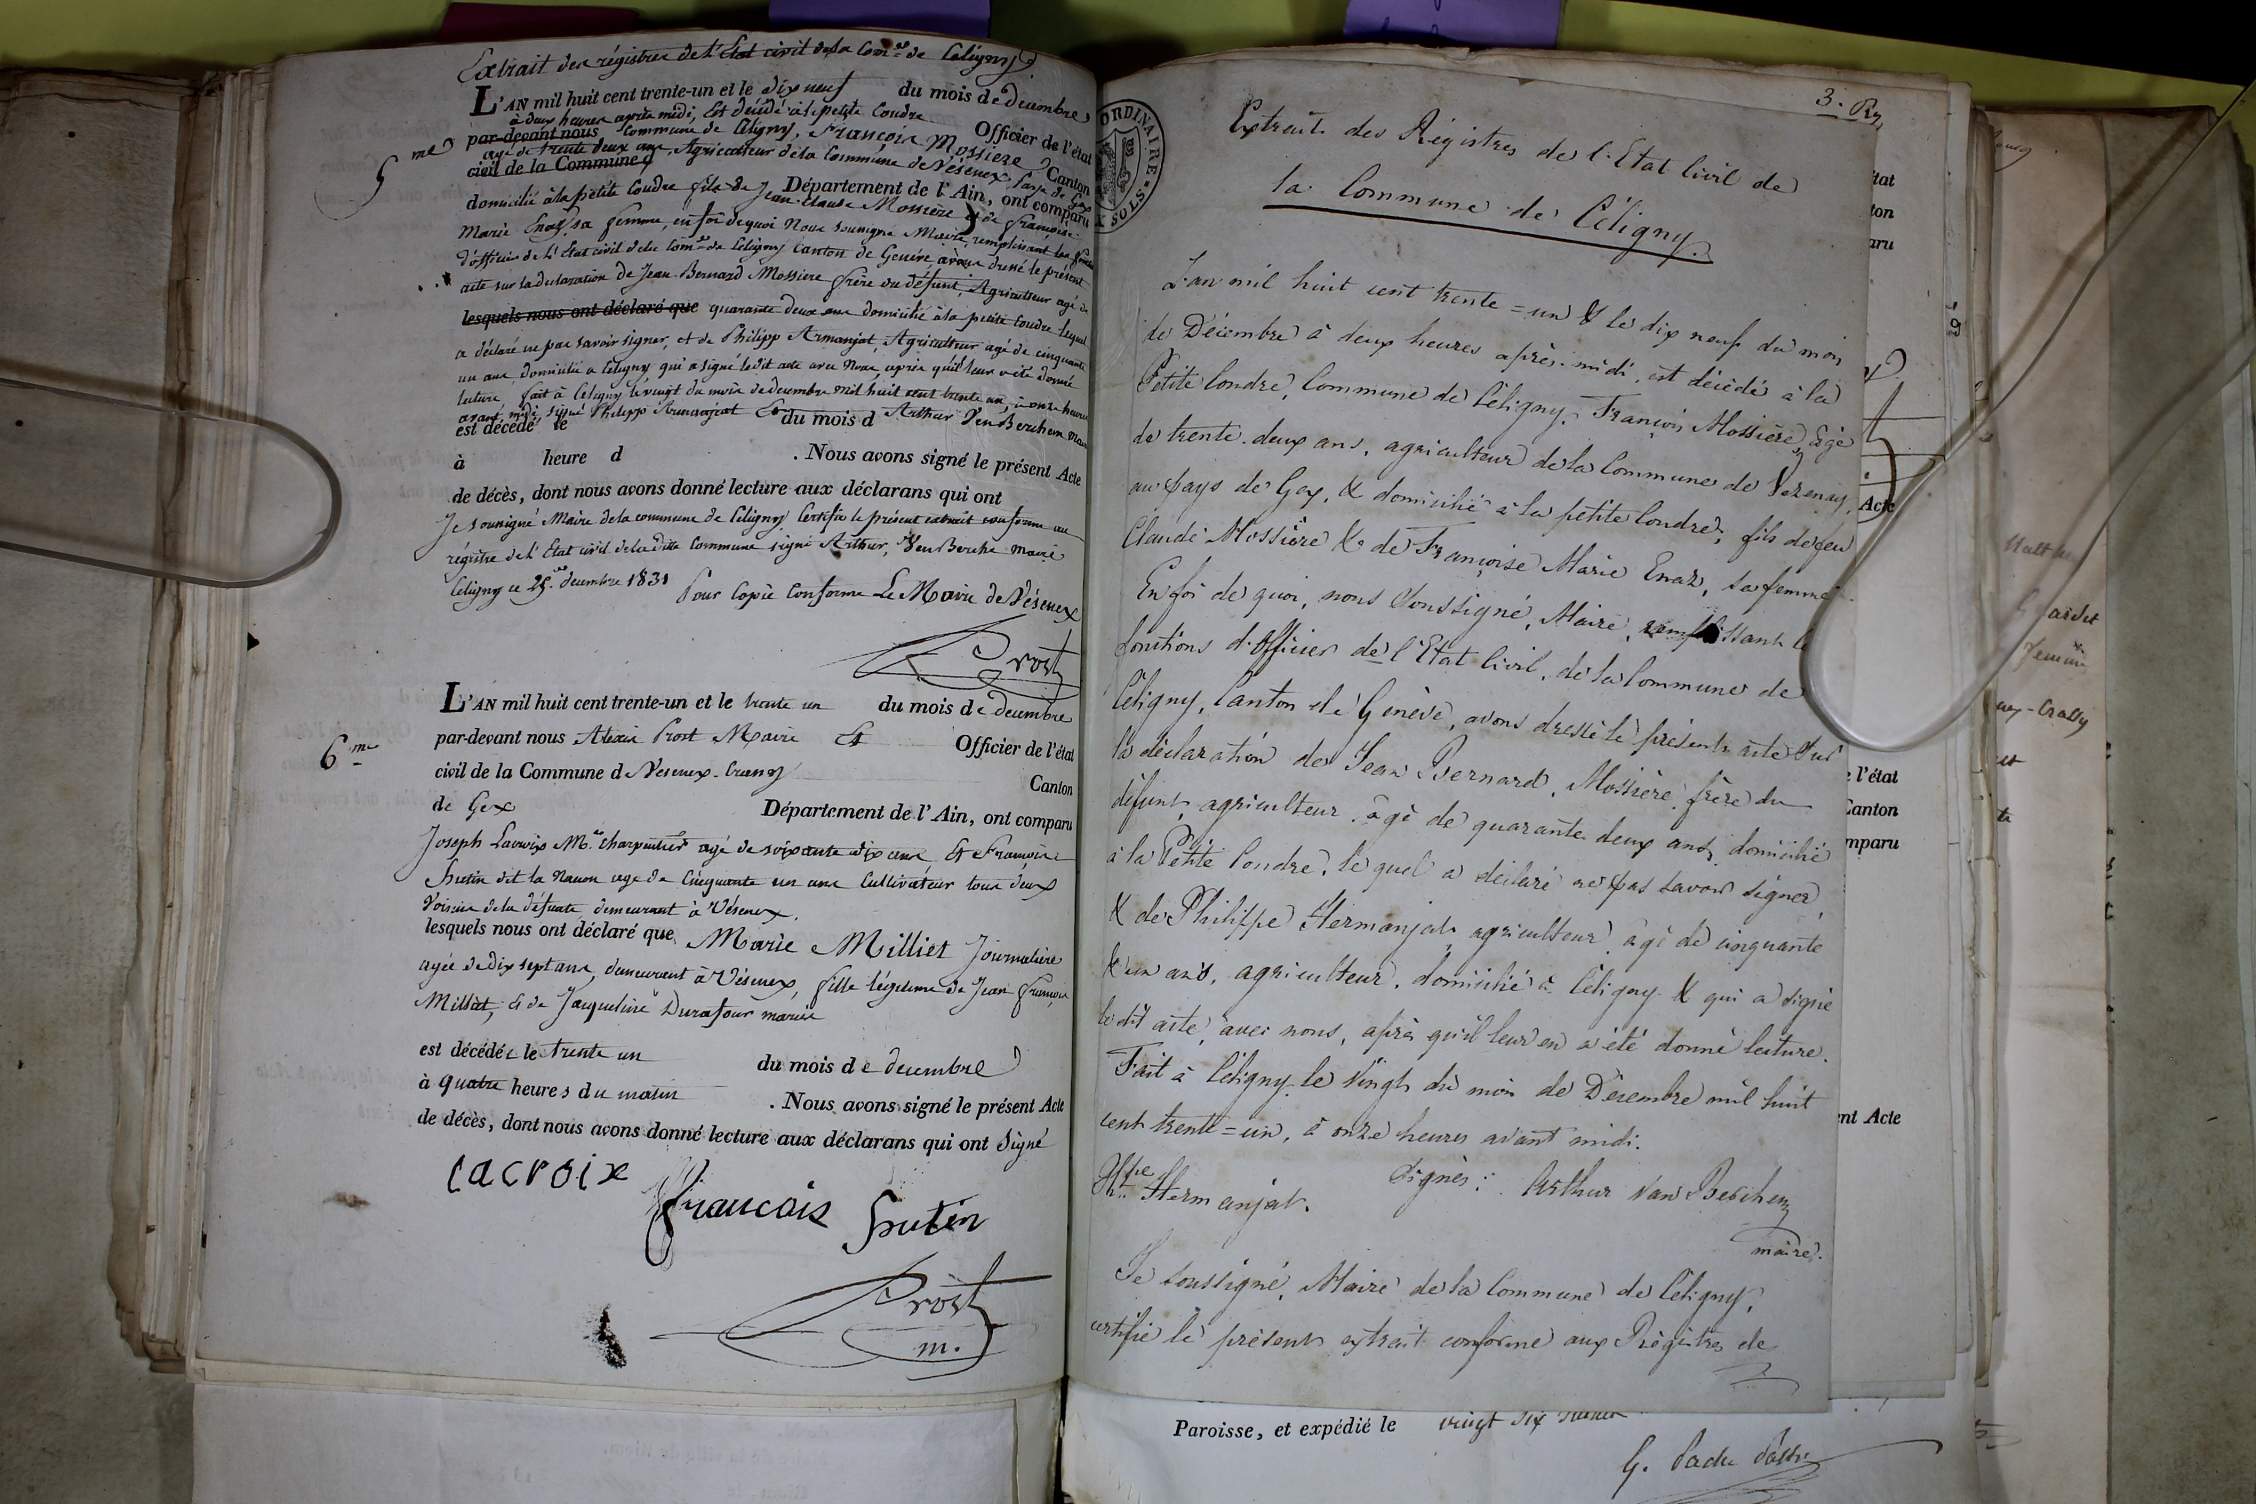 Extrait des régistres de l'Etat civil de la Com.ne de Céligny
L'AN mil huit cent trente-un et le dix neuf du mois de decembre
à deux heures après midi, Est décédé à la petite Coudre
par-devant nous Commune de Céligny, François Mossiere Officier de l'état
agé de trente deux ans, Agriculteur de la Commune de Vésenex Pays de Gex
civil de la Commune d Canton
5.me
domicilié à la petite Coudre fils de Jean-Claude Mossière et de Françoise
Département de l'Ain, ont comparu
Marie sa femme, en foi de quoi Nous sousigné Maire, remplissant les
d'officier de L'Etat civil de la Com.ne de Céligny Canton de Genève, avons dressé le présent
acte sur la déclaration de Jean-Bernard Mossiere frère du défunt, Agriculteur agé de
lesquels nous ont déclaré que quarante deux ans domicilié à la petite Coudre lequel
a déclaré ne pas savoir signer, et de Philipp Armanjat, Agriculteur agé de cinquante
un ans domicilié a Céligny qui a signé ledit acte avec Nous, après qu'il leur a été donné
lecture, fait à Céligny le vingt du mois de decembre mil huit cent trente un, à onze heures
avant midi, signé Philipp Armanjat Et Arthur VenBerchem maire
est décédé le du mois d
à heure d . Nous avons signé le présent Acte
de décès, dont nous avons donné lecture aux déclarans qui ont
Je sousigné Maire de la commune de Céligny Certifie le présent extrait conforme au
régistre de l'Etat civil de la ditte Commune signé Arthur, VenBerche maire
Céligny ce 25 decembre 1831 Pour Copie Conforme Le Maire de Vésenex
Prost
L'AN mil huit cent trente-un et le trente un du mois de decembre
6.me
par-devant nous Alexis Prost Maire Et Officier de l'état
civil de la Commune d Veseneux-Crassy Canton
de Gex Département de l'Ain, ont comparu
Joseph Lacroix M.re charpentier agé de soixante dix ans, Et François
Hutin dit la Nanon age de Cinquante un ans Cultivateur tous deux
Voisins de la défunte demeurant à Véseneux.
lesquels nous ont déclaré que Marie Milliet Journaliere
agée de dix sept ans, demeurant à Véseneux, fille légitime de Jean François
Milliet, et de Jacqueline Durafour mariés
est décédée le trente un du mois de decembre
à quatre heures du matin . Nous avons signé le présent Acte
de décès, dont nous avons donné lecture aux déclarans qui ont signé
Lacroix
francois hutin
Prost
m.
3.
ORDINAIRE
SOLS
Extrait des Régistres de l'Etat Civil de
la Commune de Céligny.
L'an mil huit cent trente=un & le dix neuf du mois
de Décembre à deux heures après-midi, est décédé à la
Petite Coudre, Commune de Céligny, François Mossière, âgé
de trente-deux ans, agriculteur de la Commune de Vezenay,
au pays de Gex, & domicilié à la petite Coudre, fils de feu
Claude Mossière & de Françoise Marie Enaz, sa femme.
En foi de quoi, nous soussigné, Maire, remplissant le
fonctions d'officier de l'Etat Civil, de la Commune de
Céligny, Canton de Genève, avons dressé le présent acte sur
la déclaration de Jean Bernard, Mossière, frère du
défunt, agriculteur, âgé de quarante deux ans, domicilié
à la Petite Coudre, lequel a déclaré ne pas savoir signer,
& de Philippe Hermanjat agriculteur, âgé de cinquante
& un ans, agriculteur, domicilié à Céligny & qui a signé
le dit acte, avec nous, après qu'il leur en a été donné lecture.
Fait à Céligny le vingt du mois de Décembre mil huit
cent trente=un, à onze heures avant midi.
signés: Arthur van Berchem
Hermanjat.
maire.
Je soussigné, Maire de la Commune de Céligny,
certifie le présent extrait conforme aux Régistres de
Paroisse, et expédié le vingt six
état
ton
aru
Acte
l'état
Canton
mparu
nt Acte